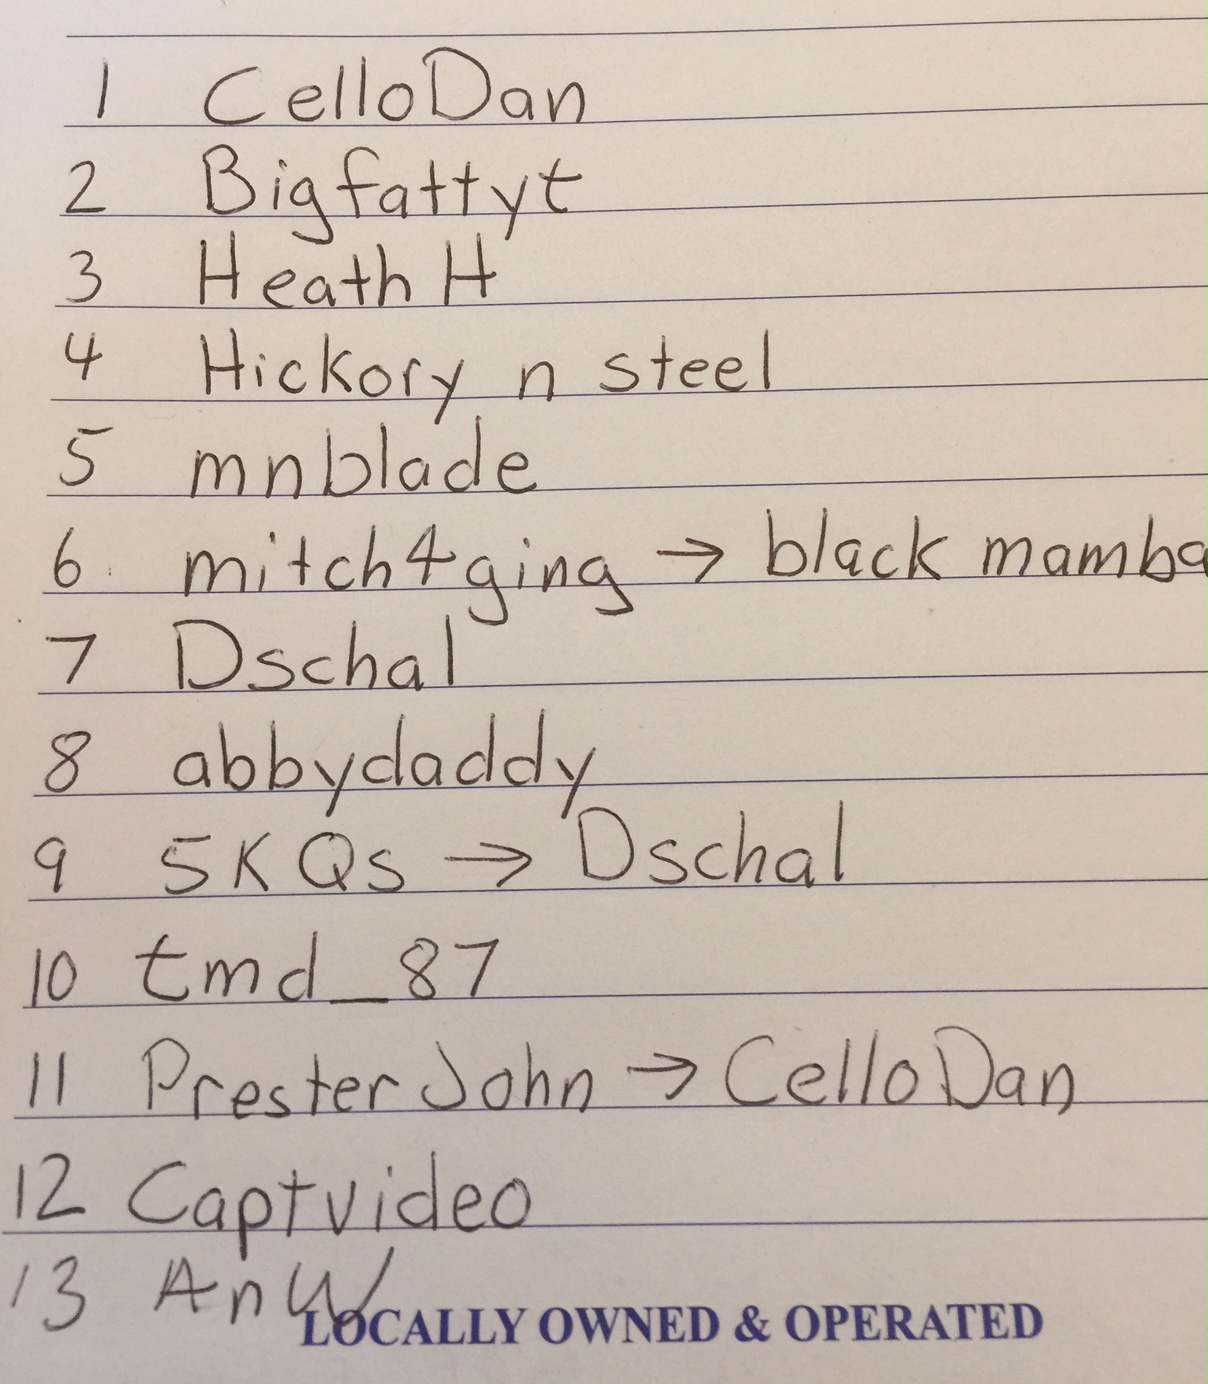 1 CelloDan
2 Bigfattyt
3 Heath H
4 Hickory n steel
5 mnblade
6 mitch4ging → black mamba
7 Dschal
8 abbydaddy
9 5K Qs → Dschal
10 tmd_87
11 Prester John → CelloDan
12 Captvideo
13 AnW
LOCALLY OWNED & OPERATED